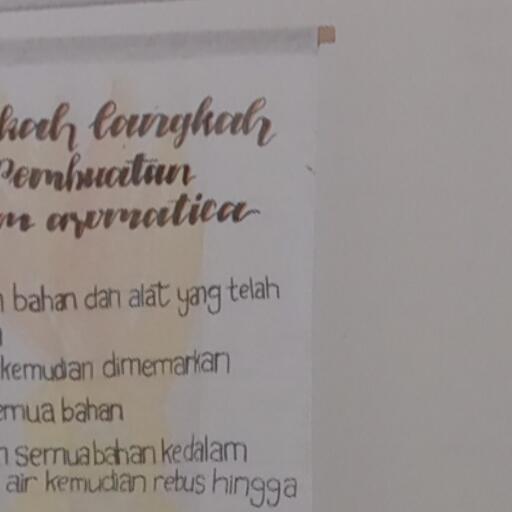 kah langkah
Pembuatan
m aromatica
n bahan dan alat yang telah
kemudian dimemarkan
emua bahan
n semua bahan kedalam
air kemudian rebus hingga